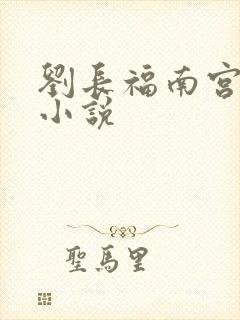 劉長福南宮
小說
聖馬里